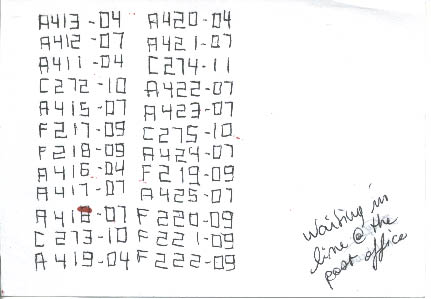 A413-04
A412-07
A411-04
C272-10
A415-07
F217-09
F218-09
A416-04
A417-07
A418-07
C273-10
A419-04
A420-04
A421-07
C274-11
A422-07
A423-07
C275-10
A424-07
F219-09
A425-07
F220-09
F221-09
F222-09
Waiting in
line @ the
post office